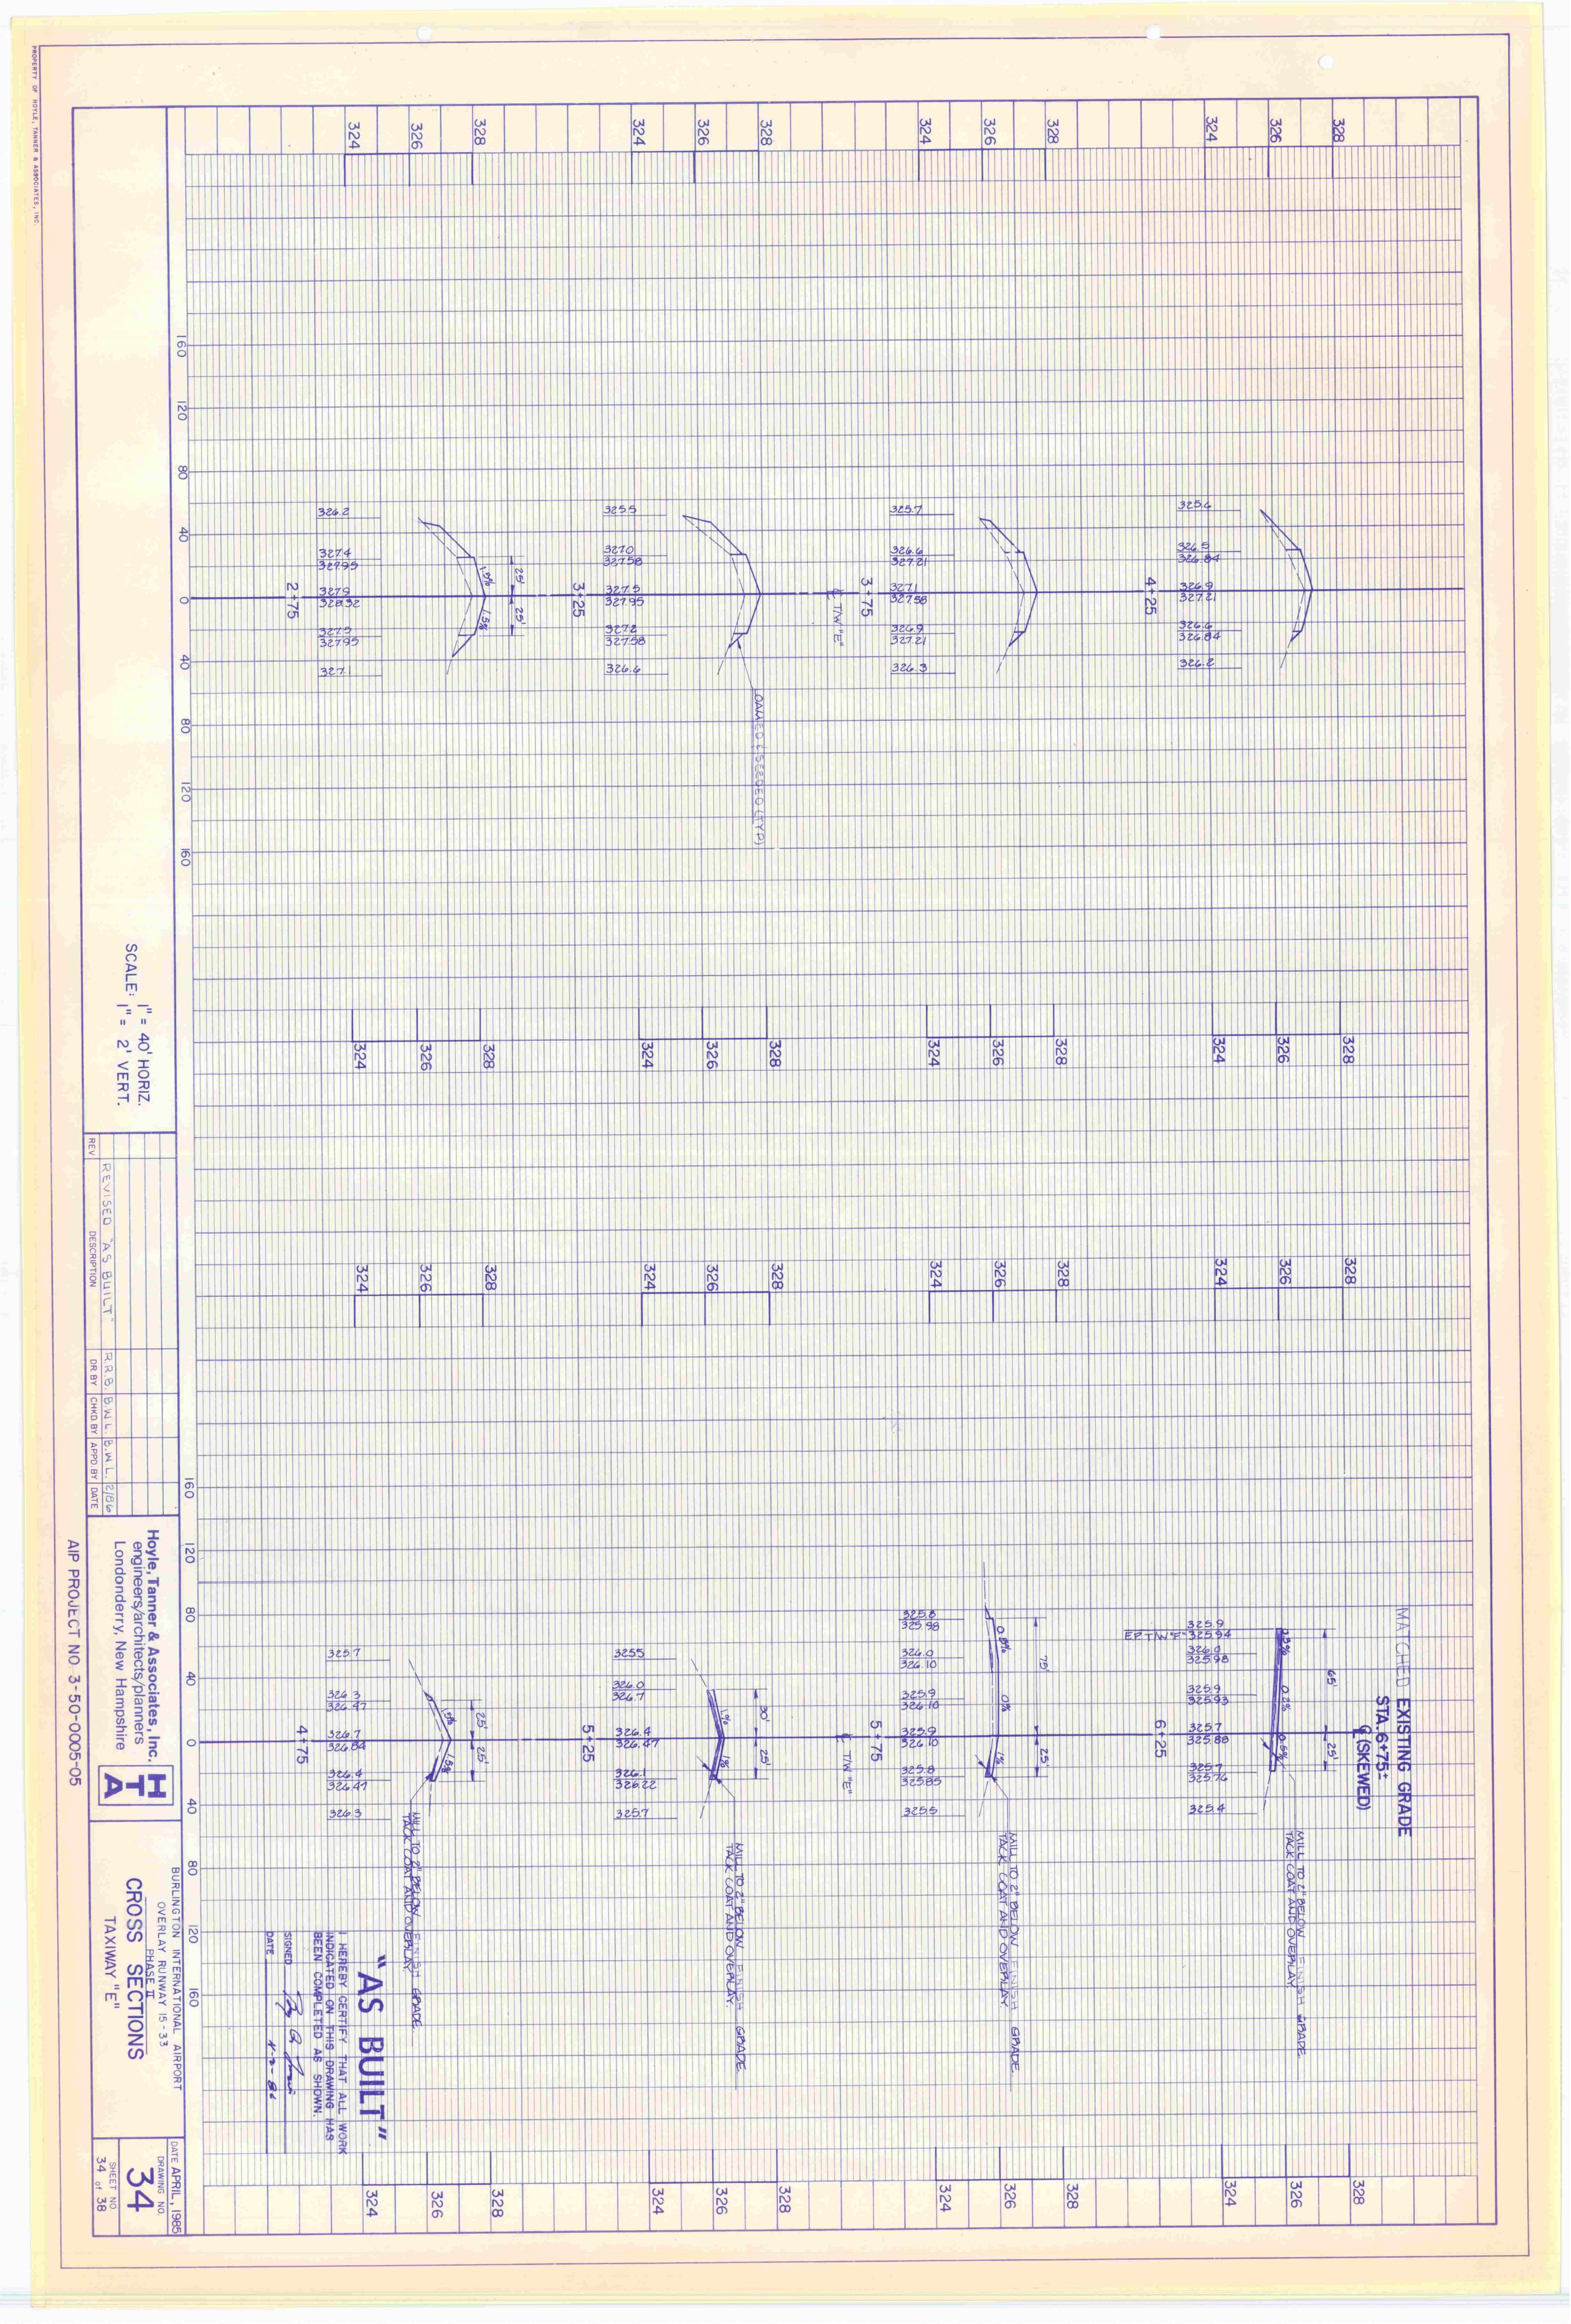 PROPERTY OF HOYLE, TANNER & ASSOCIATES, INC.
MATCHED EXISTING GRADE
STA. 6+75±
℄ (SKEWED)
328
326
324
325.6
326.5
326.84
326.9
327.21
326.6
326.84
326.2
4+25
328
326
324
325.7
326.6
327.21
327.1
327.58
326.9
327.21
326.3
3+75
℄ T/W "E"
328
326
324
325.5
327.0
327.58
327.5
327.95
327.2
327.58
326.6
3+25
LOAMED & SEEDED (TYP)
328
326
324
25'
25'
1.5%
1.5%
326.2
327.4
327.95
327.9
328.32
327.5
327.95
327.1
2+75
160
120
80
40
0
40
80
120
160
328
326
324
328
326
324
328
326
324
328
326
324
328
326
324
328
326
324
328
326
324
328
326
324
65'
25'
0.2%
0.5%
325.9
EP T/W "F" 325.94
326.0
325.98
325.9
325.93
325.7
325.88
325.7
325.76
325.4
6+25
MILL TO 2" BELOW FINISH GRADE.
TACK COAT AND OVERLAY.
75'
25'
0.8%
0%
1%
325.8
325.98
326.0
326.10
325.9
326.10
325.9
326.10
325.8
325.85
325.5
5+75
℄ T/W "E"
MILL TO 2" BELOW FINISH GRADE.
TACK COAT AND OVERLAY
30'
25'
1%
1%
325.5
326.0
326.7
326.4
326.47
326.1
326.22
325.7
5+25
MILL TO 2" BELOW FINISH GRADE.
TACK COAT AND OVERLAY.
25'
25'
1.5%
1.5%
325.7
326.3
326.47
326.7
326.84
326.4
326.47
326.3
4+75
MILL TO 2" BELOW FINISH GRADE.
TACK COAT AND OVERLAY.
328
326
324
328
326
324
328
326
324
328
326
324
160
120
80
40
0
40
80
120
160
"AS BUILT"
I HEREBY CERTIFY THAT ALL WORK
INDICATED ON THIS DRAWING HAS
BEEN COMPLETED AS SHOWN.
SIGNED
DATE
SCALE: 1" = 40' HORIZ.
1" = 2' VERT.
REVISED "AS BUILT" R.R.B. B.W.L. B.W.L. 2/86
REV DESCRIPTION DR BY CHKD BY APPD BY DATE
Hoyle, Tanner & Associates, Inc.
engineers/architects/planners
Londonderry, New Hampshire
HTA
BURLINGTON INTERNATIONAL AIRPORT
OVERLAY RUNWAY 15-33
PHASE II
CROSS SECTIONS
TAXIWAY "E"
DATE APRIL, 1985
DRAWING NO.
34
SHEET NO.
34 of 38
AIP PROJECT NO. 3-50-0005-05